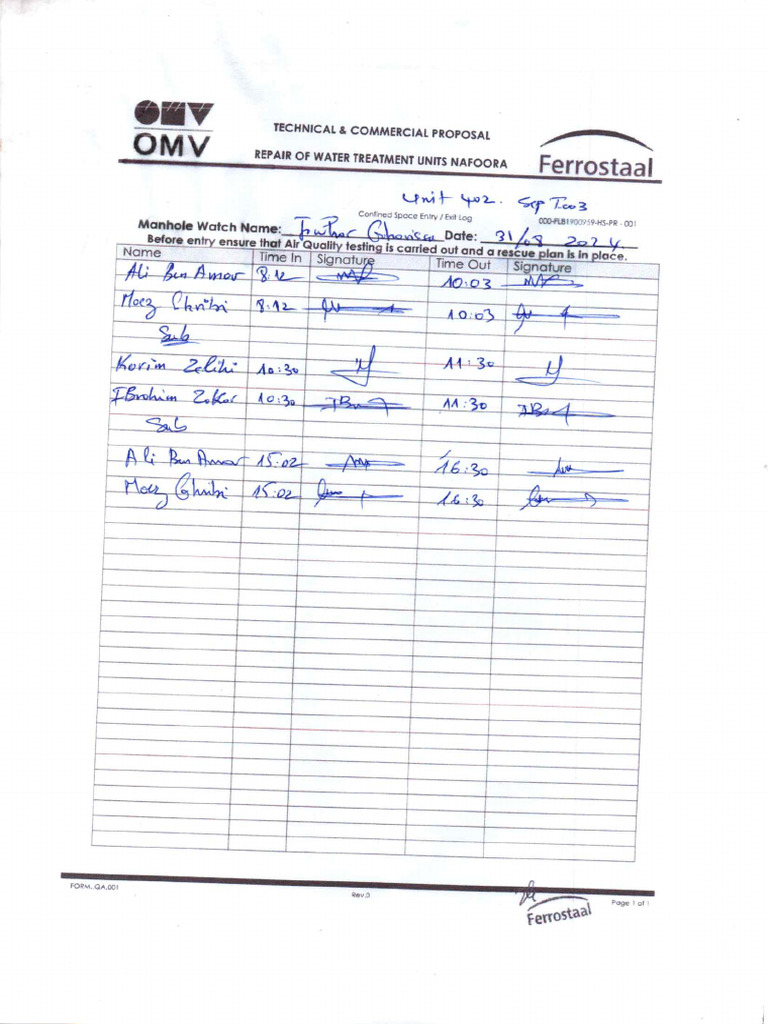 OMV
OMV
TECHNICAL & COMMERCIAL PROPOSAL
REPAIR OF WATER TREATMENT UNITS NAFOORA
Ferrostaal
Unit 402. Sep T.003
Confined Space Entry / Exit Log 000-FLB1900959-HS-PR - 001
Manhole Watch Name: Date: 31/08. 2024.
Before entry ensure that Air Quality testing is carried out and a rescue plan is in place.
Name Time In Signature Time Out Signature
Ali Ben Amor 8:12 10:03
Moez Ghribi 8:12 10:03
Sub
Karim Zelihi 10:30 11:30
IBrahim Zokar 10:30 11:30
Sub
Ali Ben Amor 15:02 16:30
Moez Ghribi 15:02 16:30
FORM..QA.001 Rev.0 Page 1 of 1
Ferrostaal